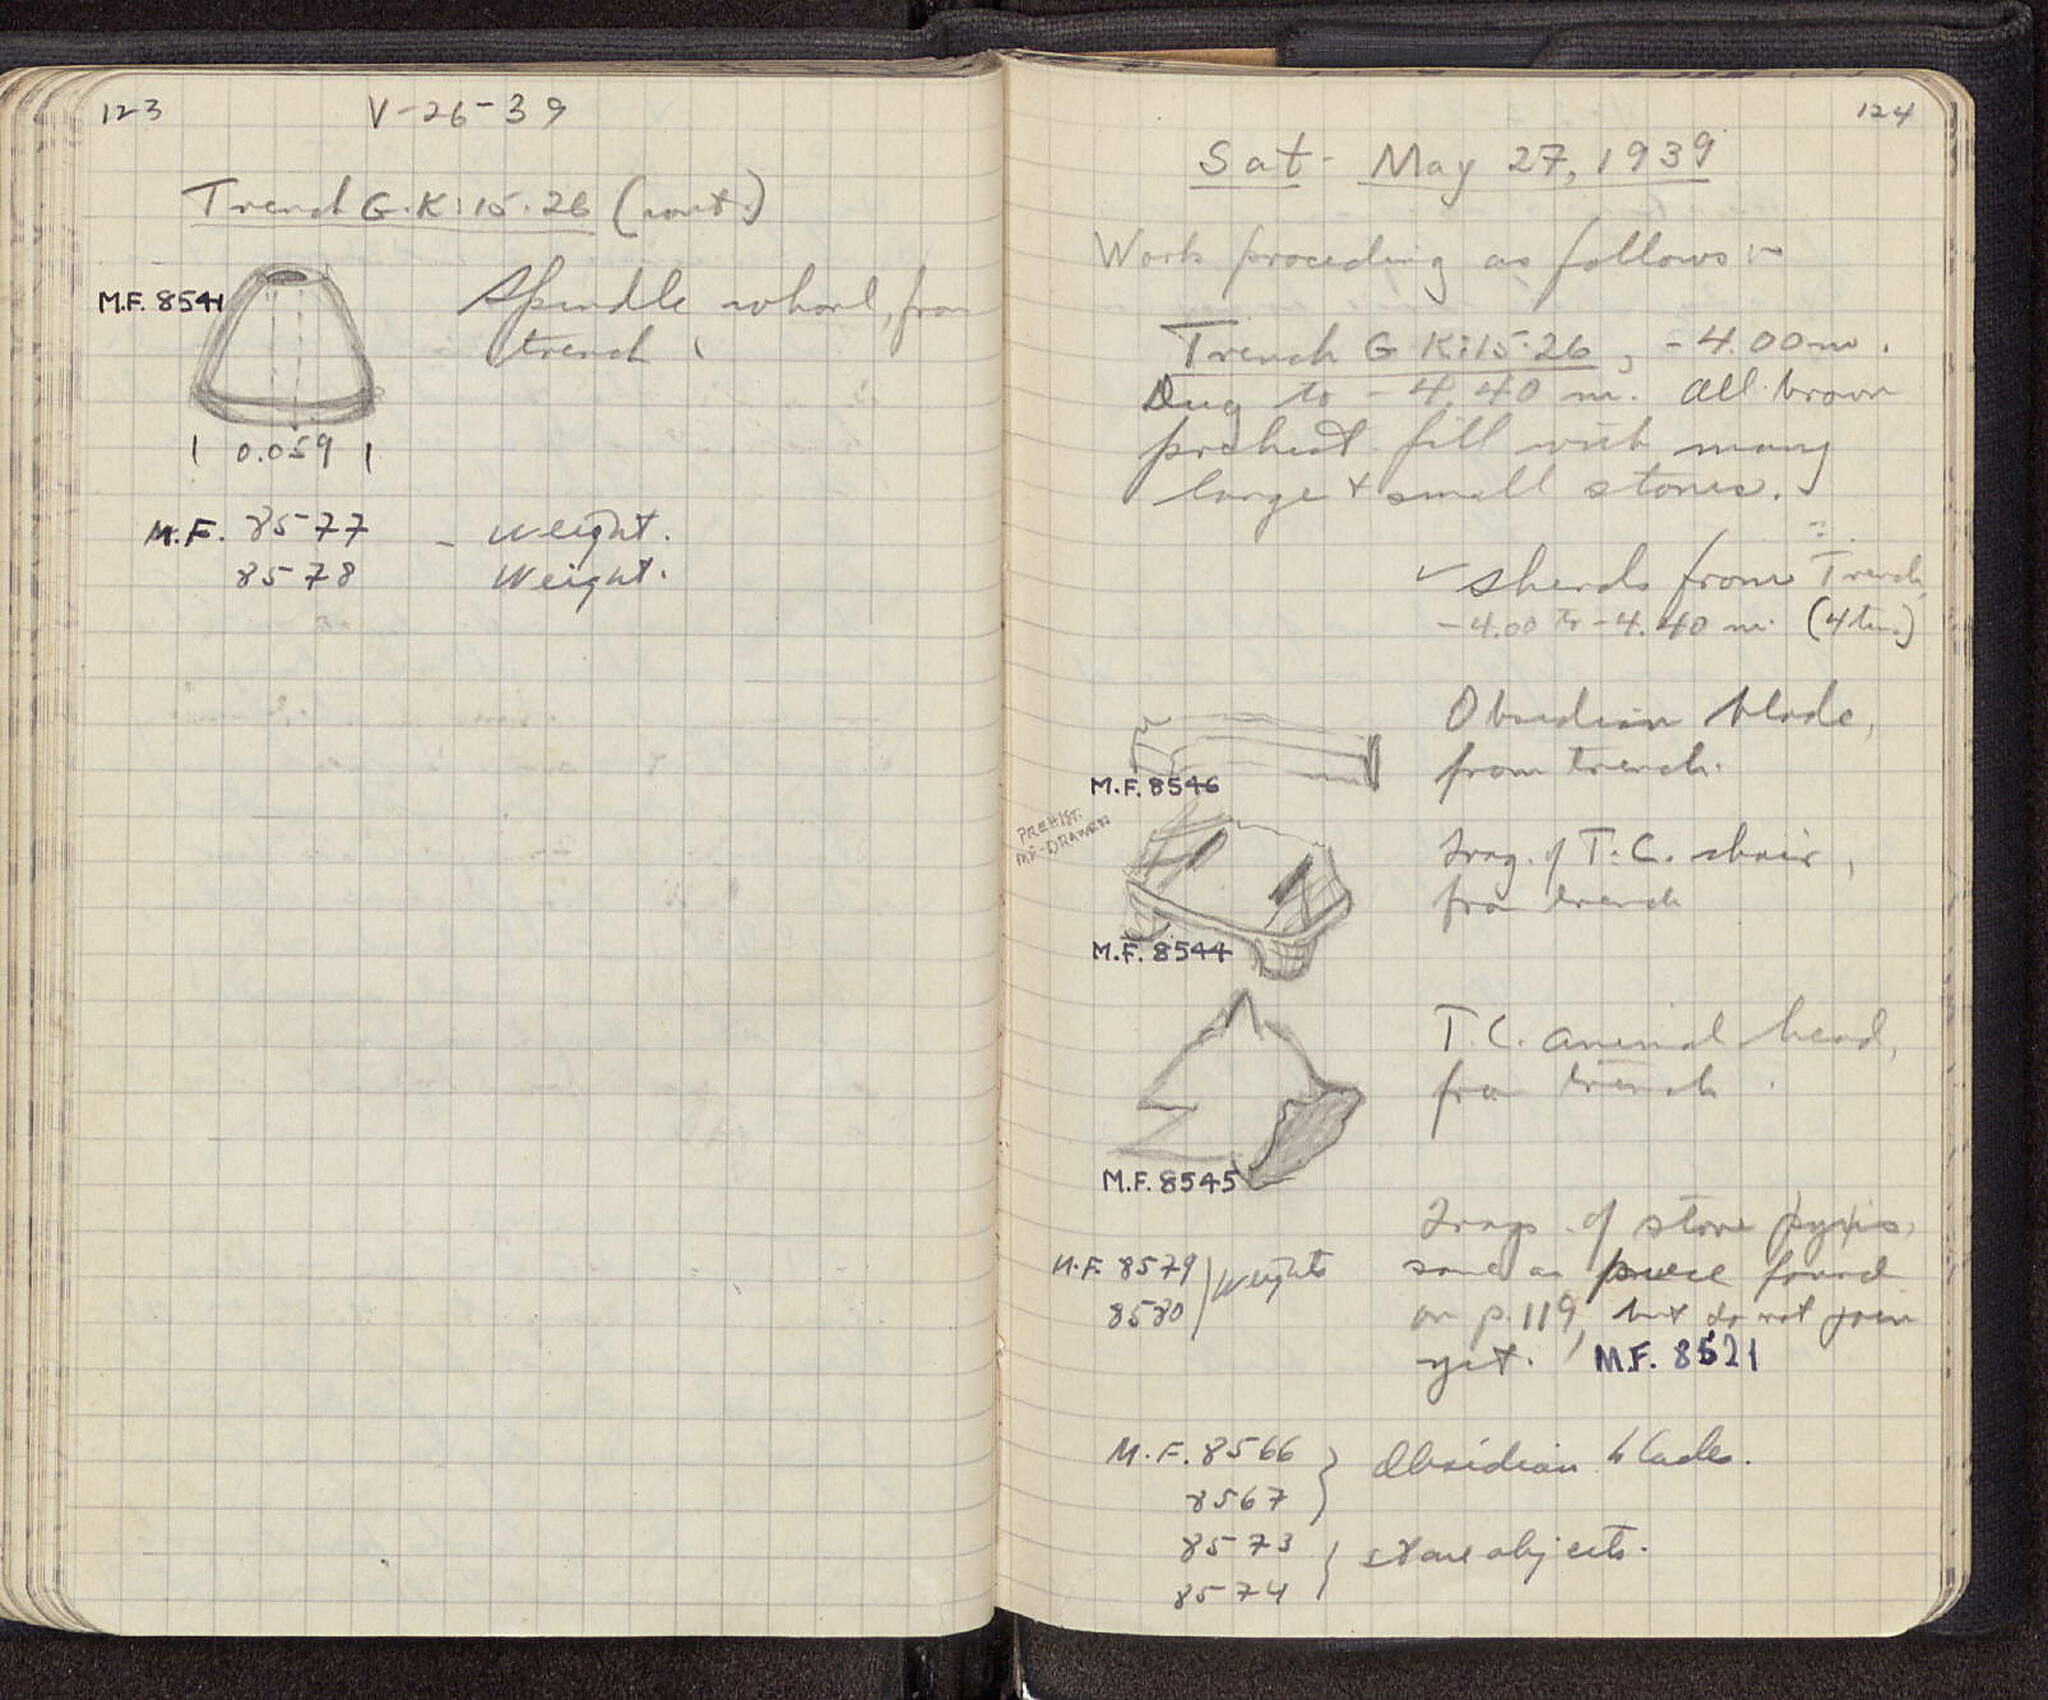 123
V-26-39
Trench G.K:15.26 (cont.)
M.F. 8541
Spindle whorl, from
trench.
0.059
M.F. 8577 - weight.
8578 Weight.
124
Sat- May 27, 1939
Work proceeding as follows:-
Trench G K:15.26, -4.00m.
Dug to -4.40 m. All brown
prehist. fill with many
large + small stones.
✓ sherds from Trench,
-4.00 to -4.40 m. (4 tins)
Obsidian blade,
from trench.
M.F. 8546
PREHIST.
MF-DRAWER
Frag. of T.C. chair,
from trench
M.F. 8544
T.C. animal head,
from trench.
M.F. 8545
Frags. of stone pyxis,
same as piece found
on p.119, but do not join
yet. M.F. 8521
M.F. 8579
8580
weights
M.F. 8566
8567
Obsidian blades.
8573
8574
stone objects.